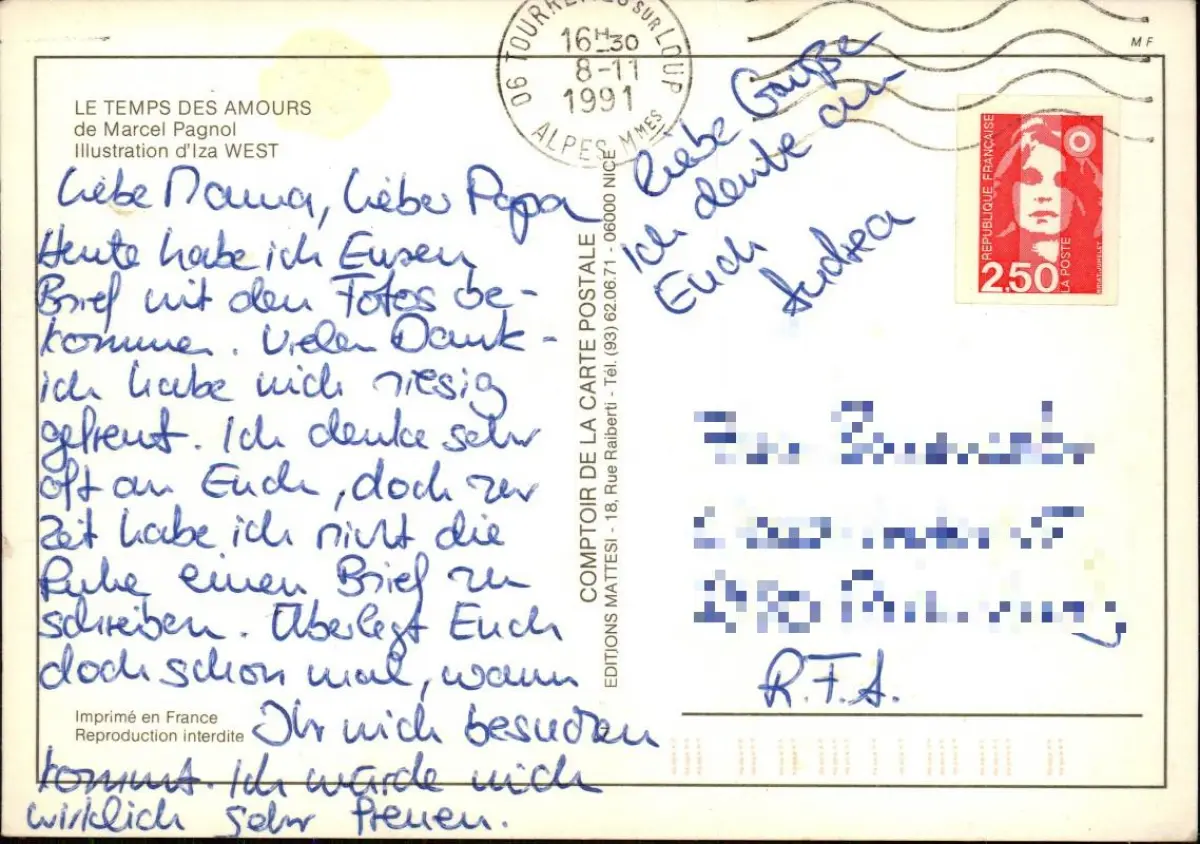 LE TEMPS DES AMOURS
de Marcel Pagnol
Illustration d'Iza WEST
Liebe Mama, lieber Papa
Heute habe ich Euren
Brief mit den Fotos be-
kommen. Vielen Dank -
ich habe mich riesig
gefreut. Ich denke sehr
oft an Euch, doch zur
Zeit habe ich nicht die
Ruhe einen Brief zu
schreiben. Überlegt Euch
doch schon mal, wann
Ihr mich besuchen
kommt. Ich würde mich
wirklich sehr freuen.
Imprimé en France
Reproduction interdite
COMPTOIR DE LA CARTE POSTALE
EDITIONS MATTESI - 18, Rue Raiberti - Tél. (93) 62.06.71 - 06000 NICE
Liebe Grüße
Ich denke an
Euch
Andrea
06 TOURRETTES SUR LOUP
16H30
8-11
1991
ALPES MMES
MF
REPUBLIQUE FRANÇAISE
2,50
LA POSTE
R.F.A.